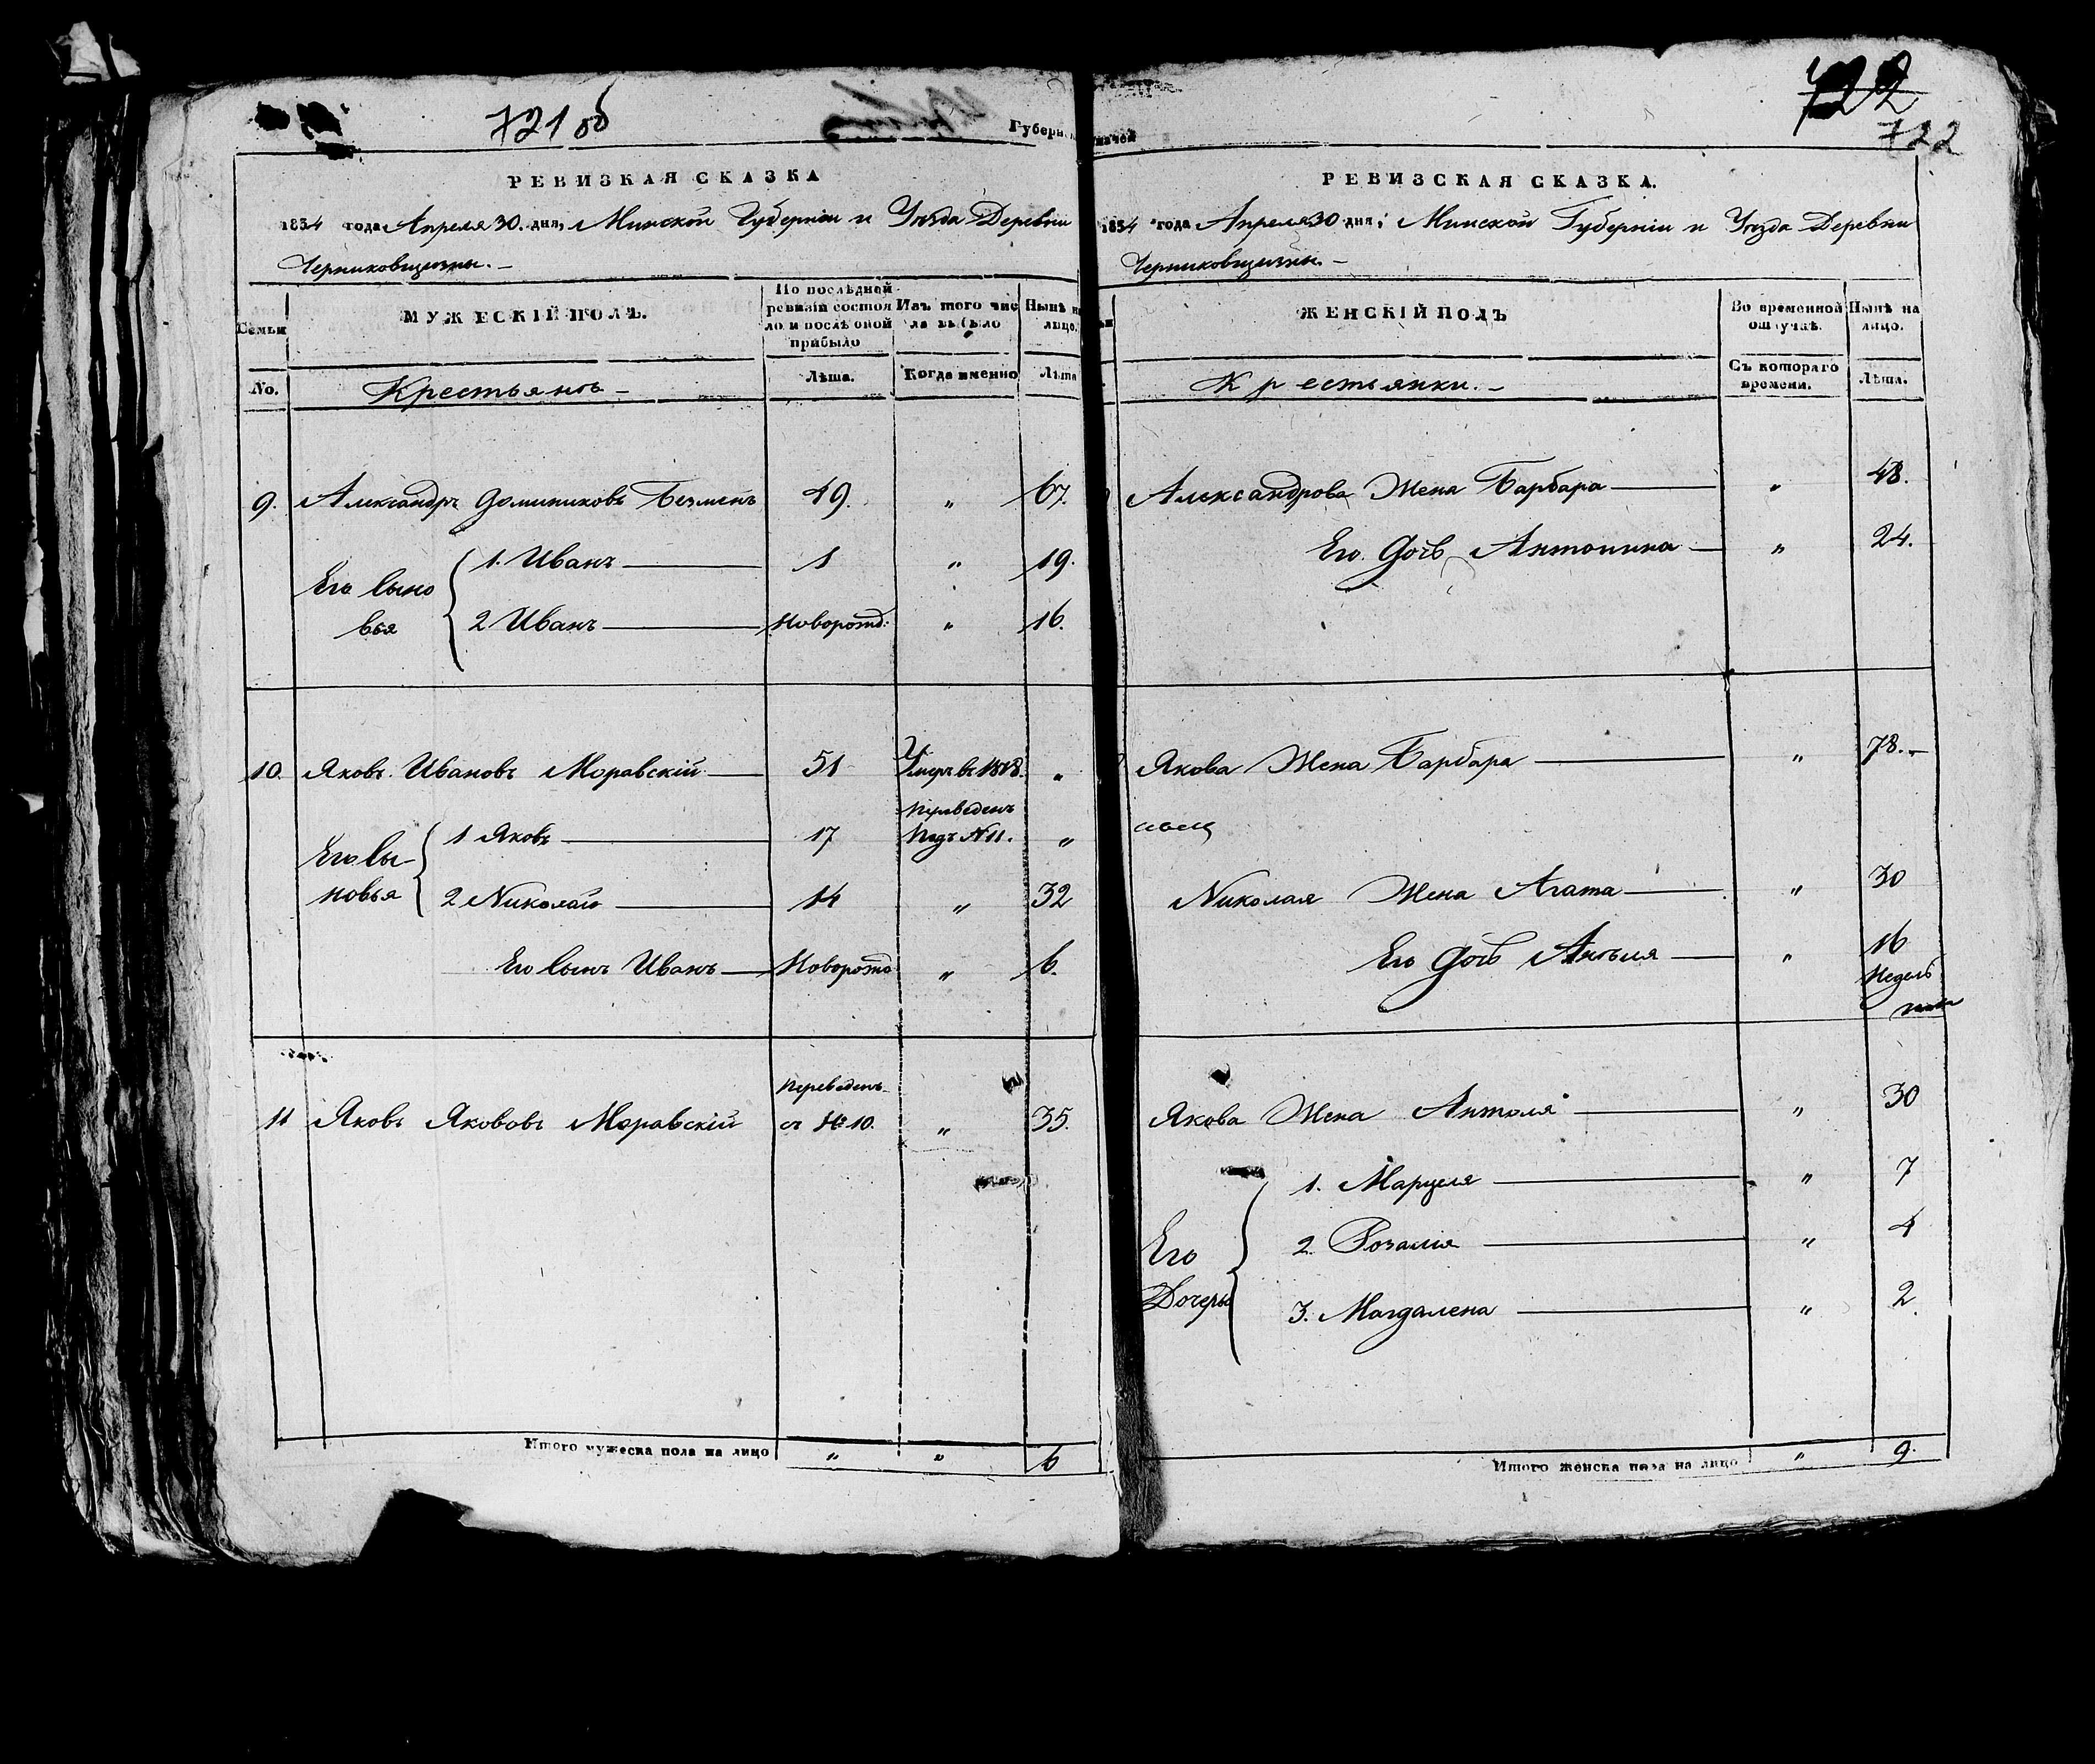 721 об
Губерн
722
722
РЕВИЗКАЯ СКАЗКА
1854 года Апреля 30. дня, Минской Губернии и Уѣзда Деревни
Черниковщизны. –
По послѣдней
ревизіи состоя
ло и послѣ оной
прибыло
Изъ того чис
ла выбыло
Нынѣ н
лицо.
Семьи
МУЖЕСКІЙ ПОЛЪ.
No.
Крестьянъ –
Лѣта.
Когда именно
Лѣта
9. Александръ Доминиковъ Безменъ 49. " 67.
1. Иванъ 1 " 19.
Его Сыно
вья
2 Иванъ Новорожд: " 16.
10. Яковъ Ивановъ Моравскій 51 "
1 Яковъ 17 Переведенъ
Подъ №11. "
Его Сы
новья
2 Николай 14 " 32
Его Сынъ Иванъ Новорожд " 6.
11 Яковъ Якововъ Моравскій Переведенъ
съ № 10. " 35.
Итого мужеска пола на лицо " " 6
РЕВИЗСКАЯ СКАЗКА.
1854 года Апреля 30 дня, Минской Губерніи и Уѣзда Деревни
Черниковщизны. –
ЖЕНСКІЙ ПОЛЪ
Во временной
отлучкѣ.
Нынѣ на
лицо.
Крестьянки. –
Съ котораго
времени.
Лѣта.
Александрова Жена Барбара " 48.
Его Дочь Антонина " 24.
Якова Жена Барбара " 78. –
Николая Жена Агата " 30
Его Дочь " 16
Недель
Якова Жена Антоля " 30
1. Марцеля " 7
2. Розалия " 4
Его
Дочерья
3. Магдалена " 2
Итого женска пола на лицо " 9.